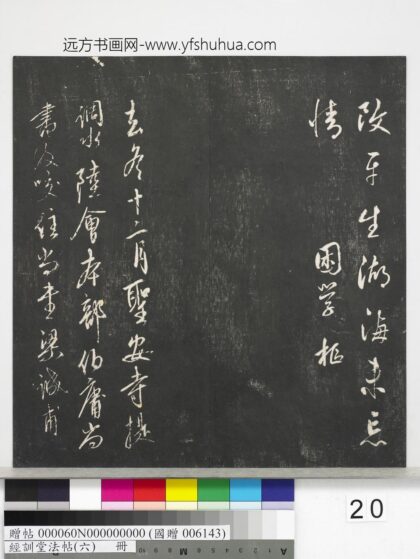 远方书画网-www.yfshuhua.com
改平生湖海未忘
情
困學樞
去冬十二月聖安寺提
調水陸會本部伯庸尚
書及咬住尚書梁誠甫
20
贈帖 000060N000000000 (國贈 006143)
經訓堂法帖(六) 冊